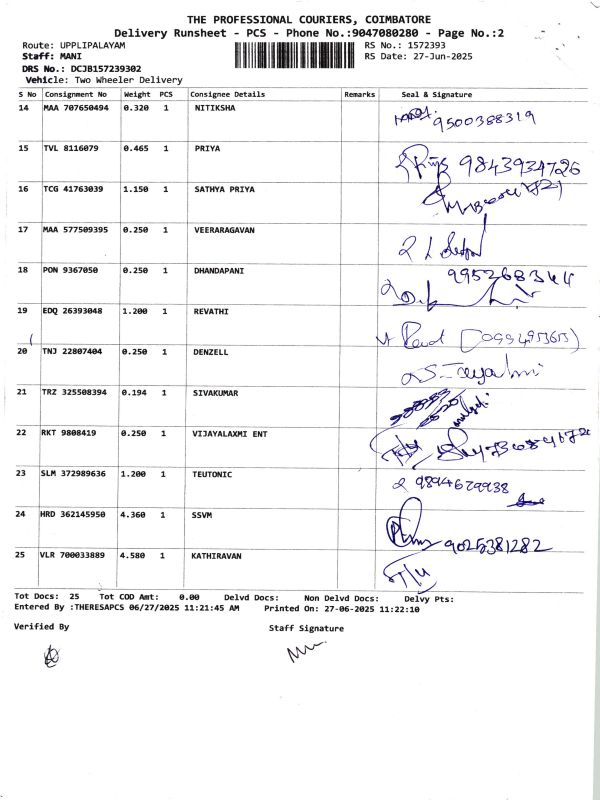 THE PROFESSIONAL COURIERS, COIMBATORE
Delivery Runsheet - PCS - Phone No.:9047080280 - Page No.:2
Route: UPPLIPALAYAM RS No.: 1572393
Staff: MANI RS Date: 27-Jun-2025
DRS No.: DCJB157239302
Vehicle: Two Wheeler Delivery
S No Consignment No Weight PCS Consignee Details Remarks Seal & Signature
14 MAA 707650494 0.320 1 NITIKSHA
9500388319
15 TVL 8116079 0.465 1 PRIYA
9843934726
16 TCG 41763039 1.150 1 SATHYA PRIYA
17 MAA 577509395 0.250 1 VEERARAGAVAN
18 PON 9367050 0.250 1 DHANDAPANI
19 EDQ 26393048 1.200 1 REVATHI
20 TNJ 22807404 0.250 1 DENZELL
21 TRZ 325508394 0.194 1 SIVAKUMAR
22 RKT 9808419 0.250 1 VIJAYALAXMI ENT
23 SLM 372989636 1.200 1 TEUTONIC
9894679938
24 HRD 362145950 4.360 1 SSVM
9025381282
25 VLR 700033889 4.580 1 KATHIRAVAN
Tot Docs: 25 Tot COD Amt: 0.00 Delvd Docs: Non Delvd Docs: Delvy Pts:
Entered By :THERESAPCS 06/27/2025 11:21:45 AM Printed On: 27-06-2025 11:22:10
Verified By Staff Signature